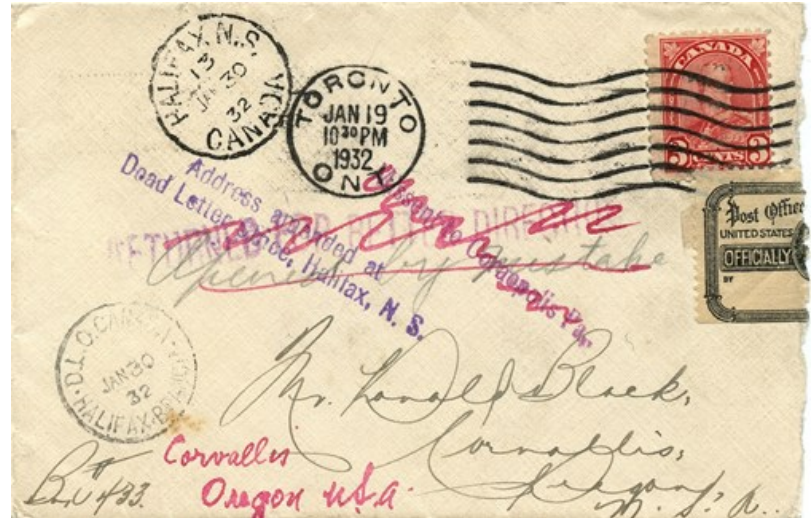 HALIFAX, N.S.
13
JAN 30
32
CANADA
TORONTO
JAN 19
10 30 PM
1932
ONT.
CANADA
3 CENTS 3
Post Office
UNITED STATES
OFFICIALLY
BY
Address amended at
Dead Letter Office, Halifax, N. S.
Missent to Coraopolis Pa.
RETURNED FOR BETTER DIRECTION
Opened by mistake
D.L.O. CANADA
JAN 30
32
HALIFAX BRANCH
Mr. Donald Black,
Corvallis,
Oregon
U. S. A.
Corvallis
Oregon USA.
Box # 433.